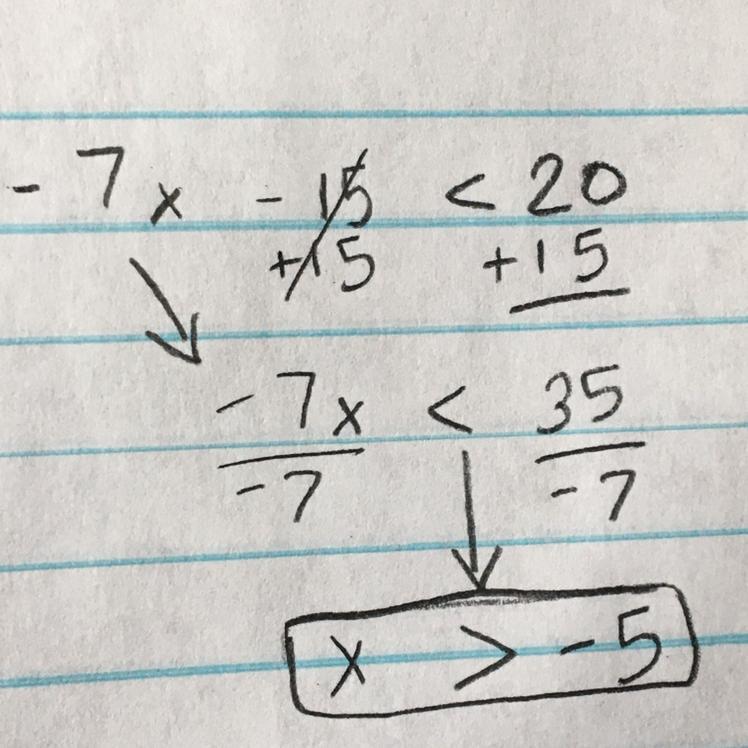 -7x -15 < 20
+15 +15
-7x < 35
-7 -7
x > -5